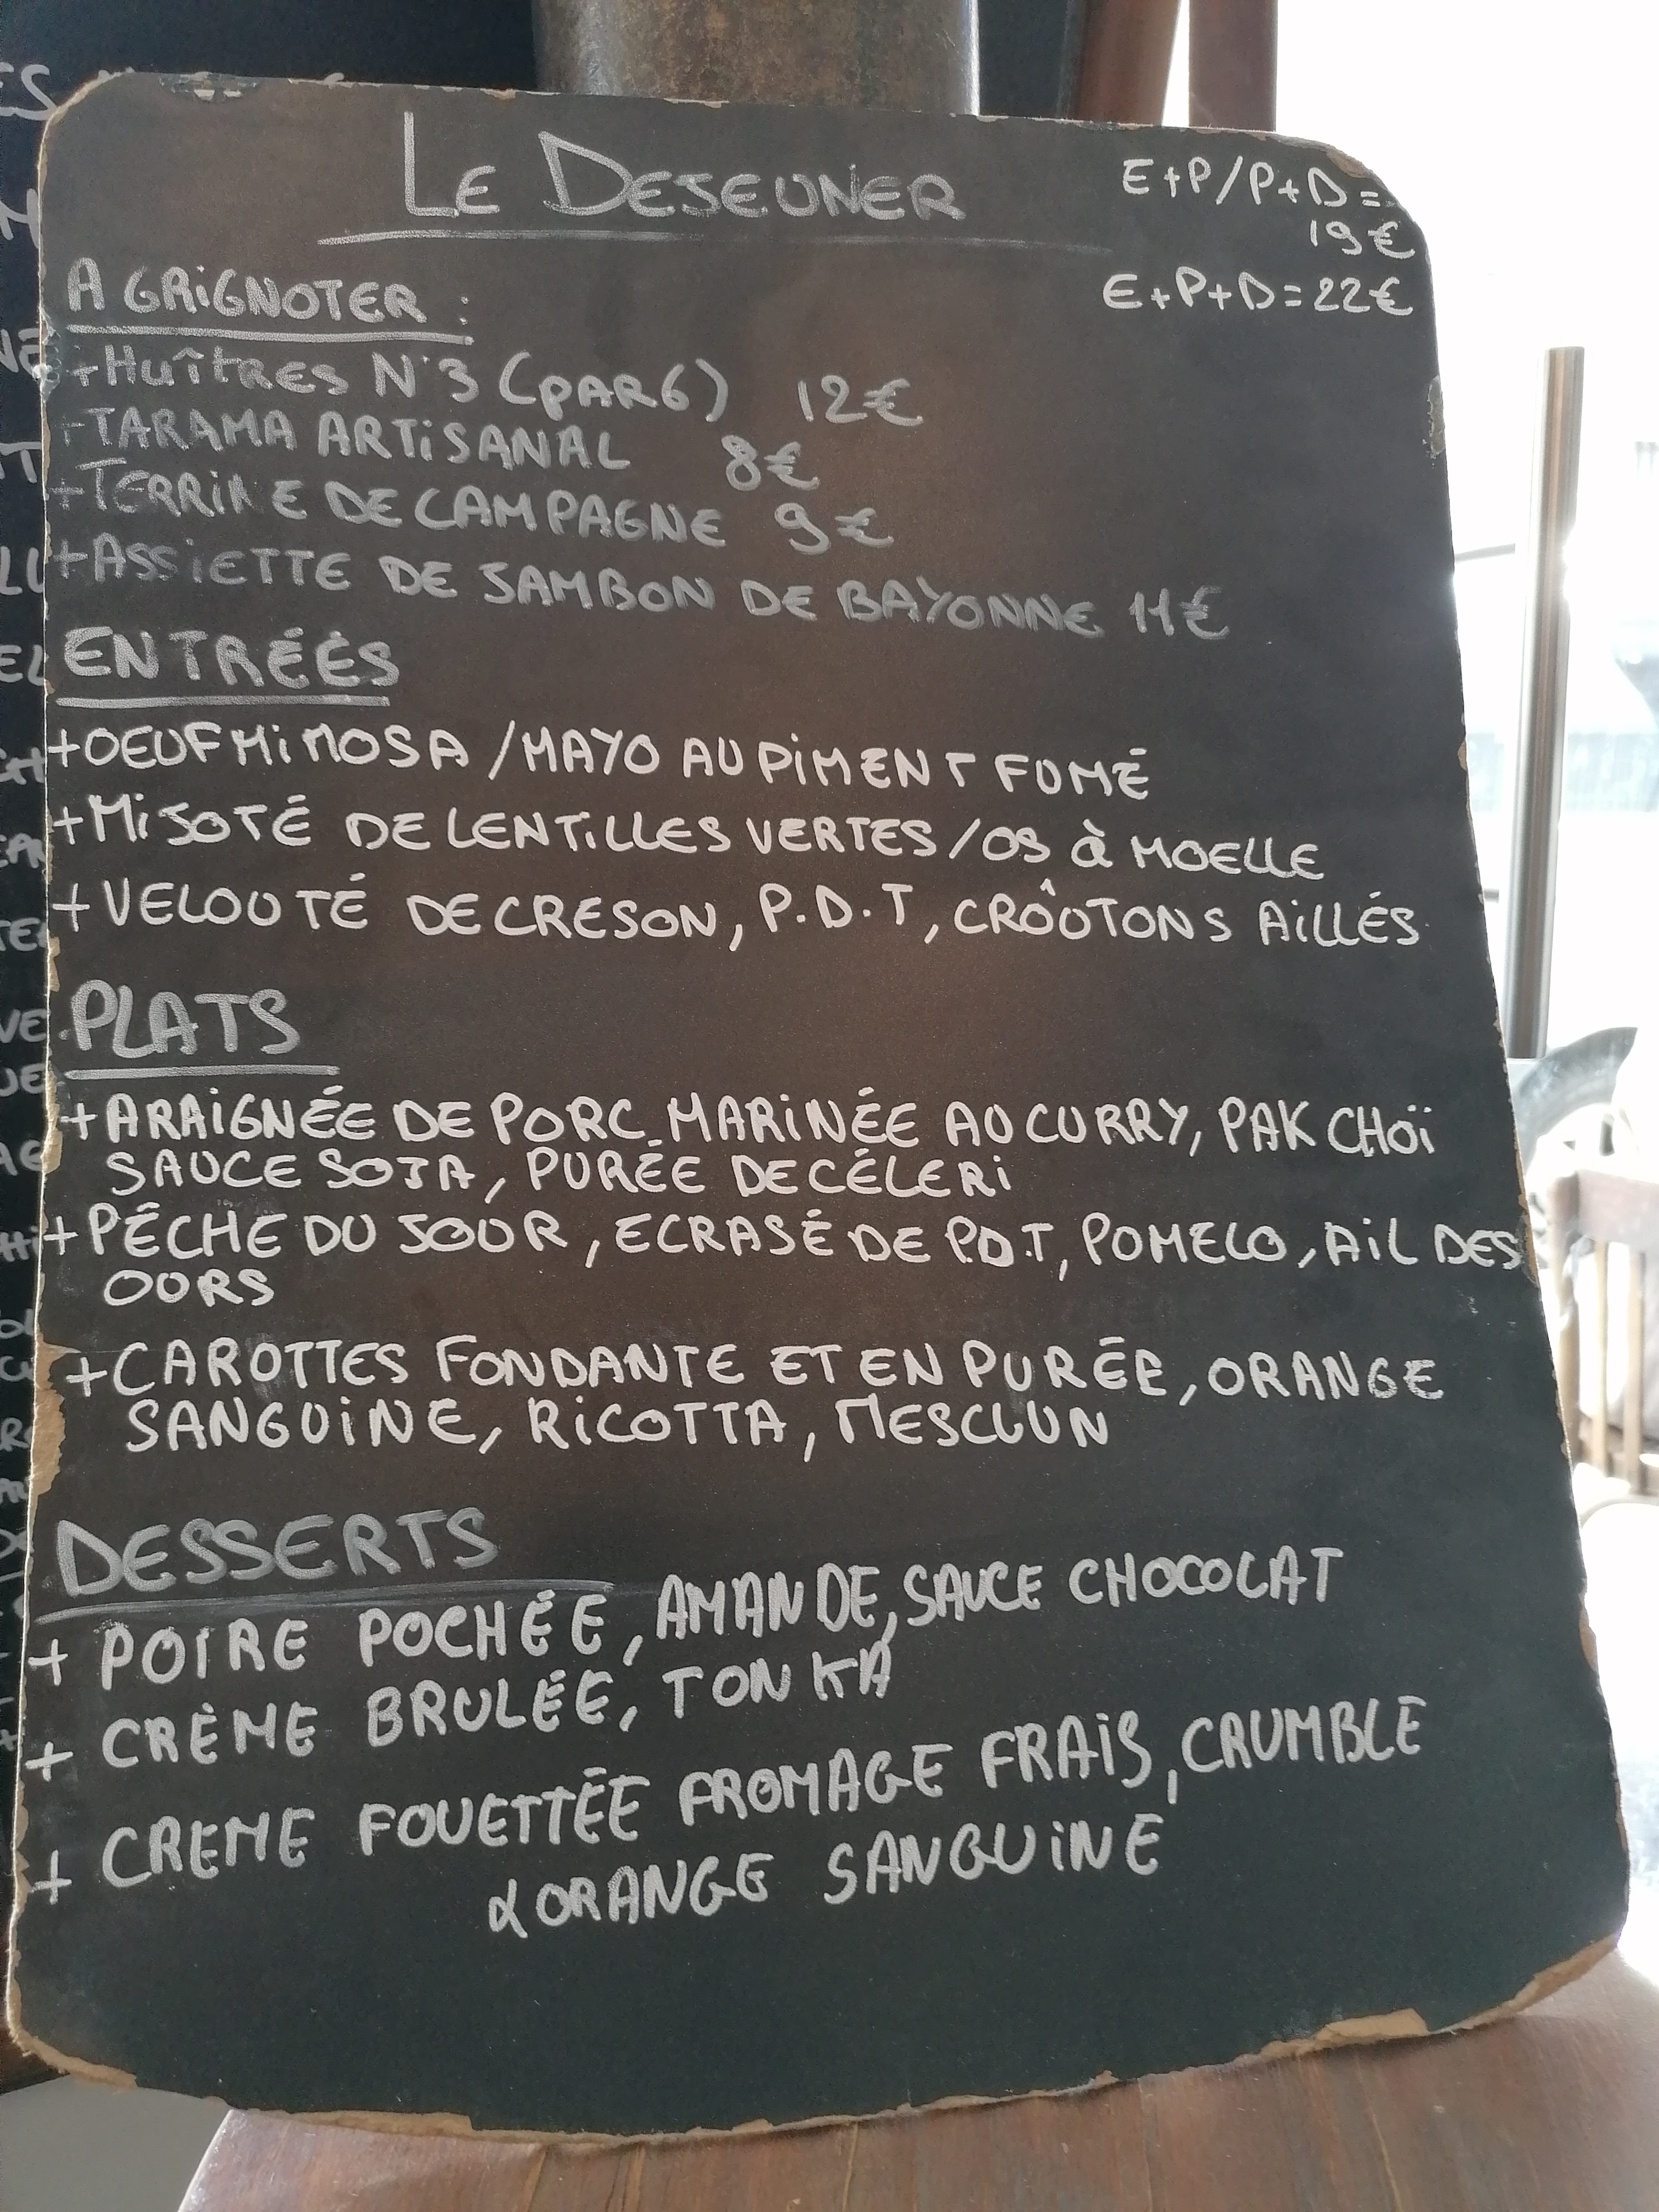 LE DEJEUNER
E+P/P+D=
19€
E+P+D=22€
A GRIGNOTER :
+HUÎTRES N°3 (PAR6) 12€
+TARAMA ARTISANAL 8€
+TERRINE DE CAMPAGNE 9€
+ASSIETTE DE JAMBON DE BAYONNE 11€
ENTRÉÉS
+OEUF MIMOSA /MAYO AU PIMENT FUMÉ
+MIJOTÉ DE LENTILLES VERTES/OS à MOELLE
+VELOUTÉ DE CRESON, P.D.T, CRÔUTONS AILLÉS
PLATS
+ARAIGNÉE DE PORC MARINÉE AU CURRY, PAK CHOÏ
SAUCE SOJA, PURÉE DE CÉLERI
+PÊCHE DU JOUR, ECRASÉ DE P.D.T, POMELO, AIL DES
OURS
+CAROTTES FONDANTE ET EN PURÉE, ORANGE
SANGUINE, RICOTTA, MESCLUN
DESSERTS
+ POIRE POCHÉE, AMANDE, SAUCE CHOCOLAT
+ CRÈME BRULÉE, TONKA
+ CREME FOUETTÉE FROMAGE FRAIS, CRUMBLE
& ORANGE SANGUINE